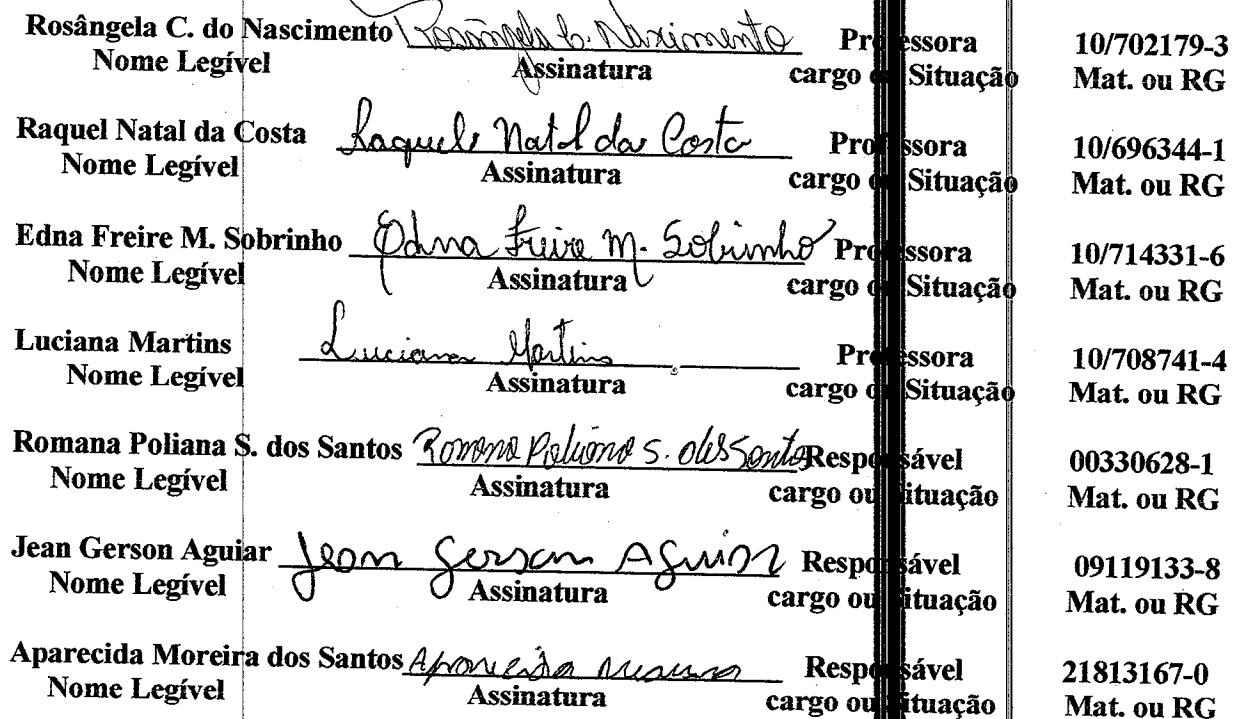 Rosângela C. do Nascimento Rosângela C. Nascimento Professora 10/702179-3
Nome Legível Assinatura cargo ou Situação Mat. ou RG
Raquel Natal da Costa Raquel Natal da Costa Professora 10/696344-1
Nome Legível Assinatura cargo ou Situação Mat. ou RG
Edna Freire M. Sobrinho Edna Freire M. Sobrinho Professora 10/714331-6
Nome Legível Assinatura cargo ou Situação Mat. ou RG
Luciana Martins Luciana Martins Professora 10/708741-4
Nome Legível Assinatura cargo ou Situação Mat. ou RG
Romana Poliana S. dos Santos Romana Poliana S. dos Santos Responsável 00330628-1
Nome Legível Assinatura cargo ou Situação Mat. ou RG
Jean Gerson Aguiar Jean Gerson Aguiar Responsável 09119133-8
Nome Legível Assinatura cargo ou Situação Mat. ou RG
Aparecida Moreira dos Santos Aparecida Responsável 21813167-0
Nome Legível Assinatura cargo ou Situação Mat. ou RG